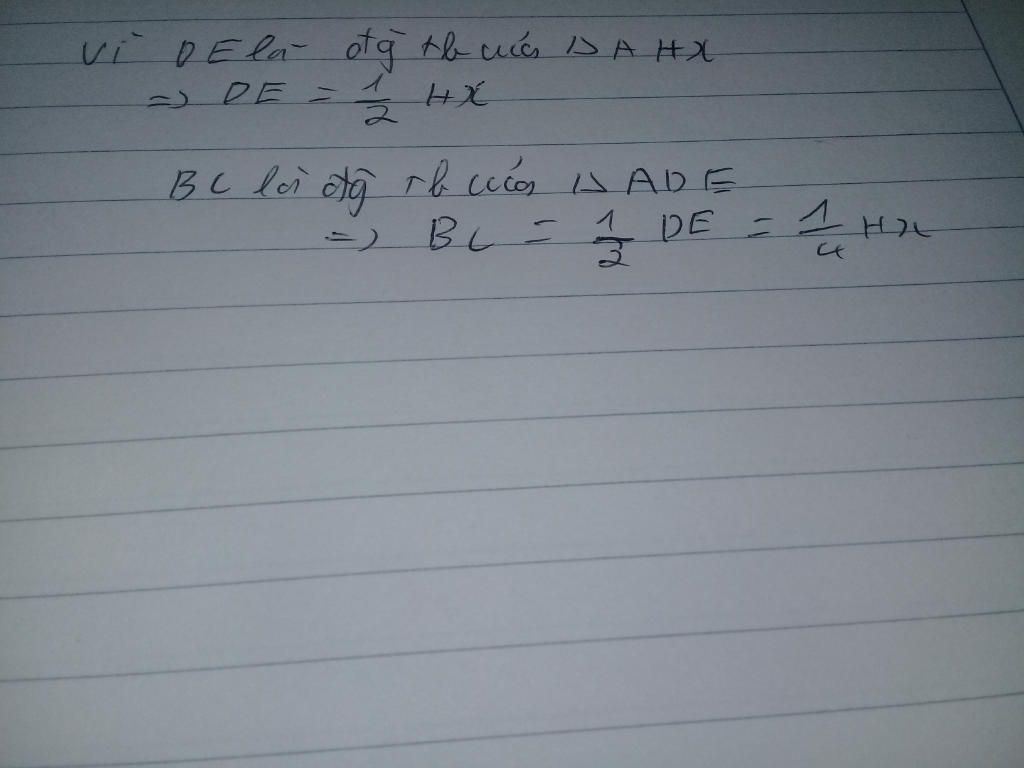 Vì DE là đtg̀ tb của △ AHX
=> DE = 1/2 HX
BC là đtg̀ tb của △ ADE
=> BC = 1/2 DE = 1/4 HX